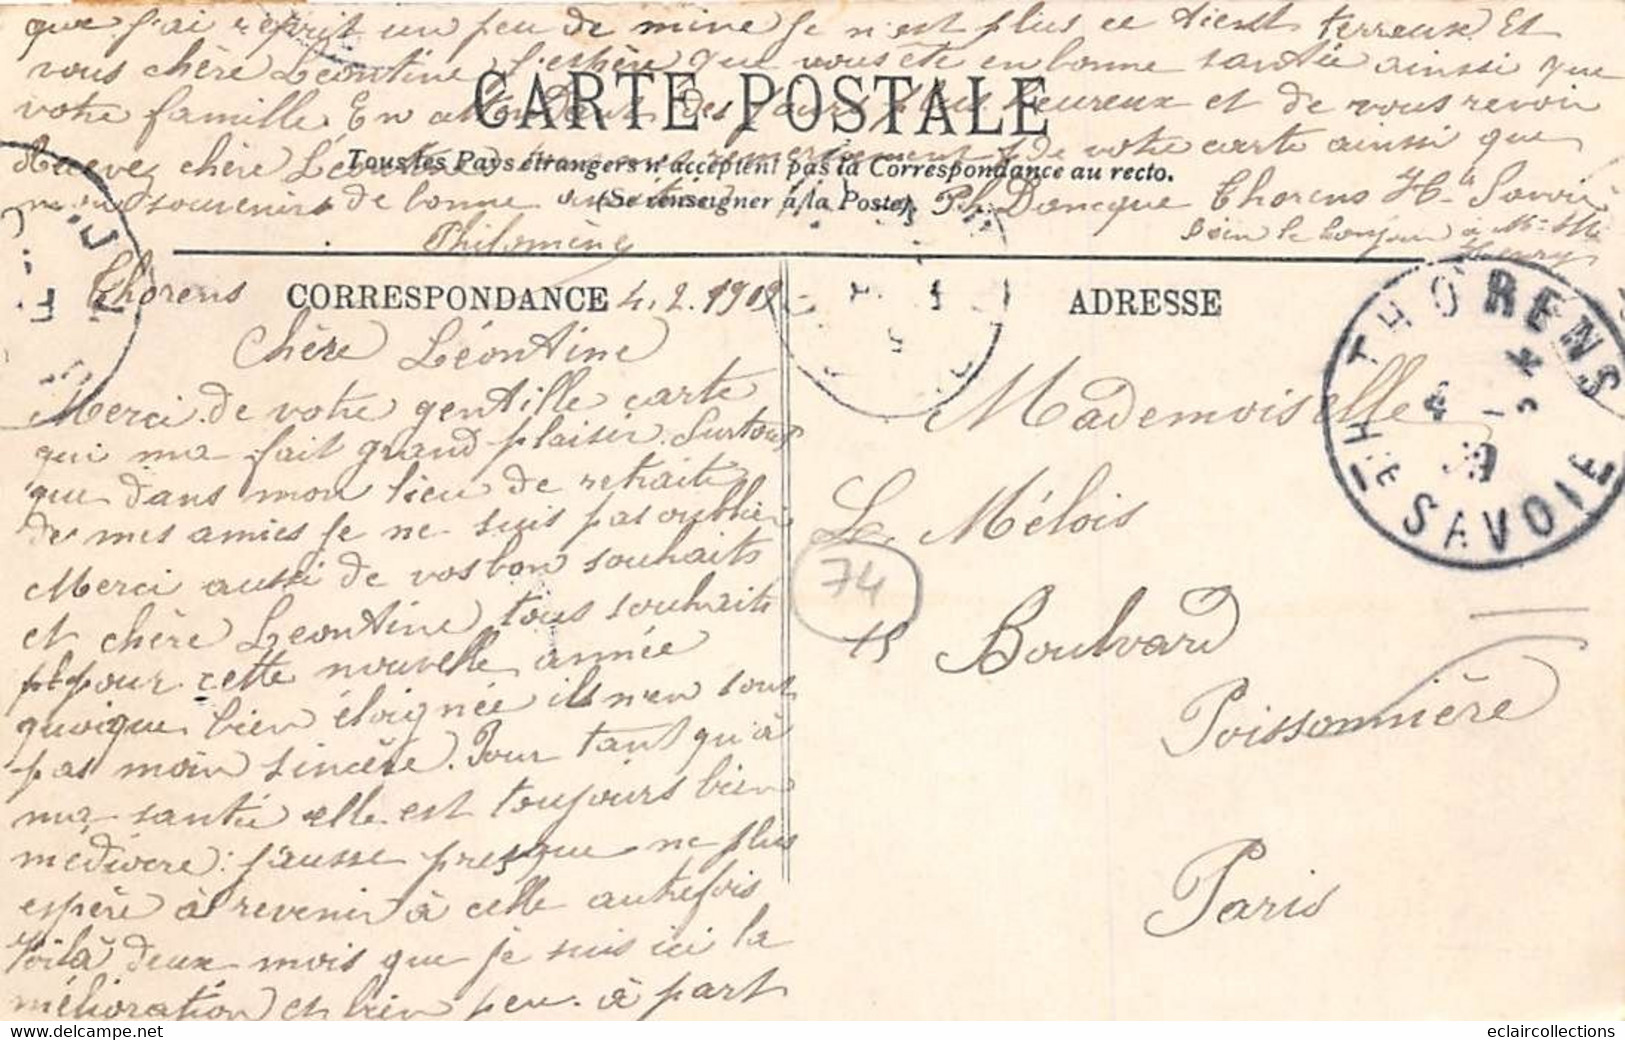 que j'ai reprit un peu de mine je n'est plus ce tient terreux. Et
vous chère Léontine j'espère que vous ête en bonne santée ainsi que
votre famille. En attendant des jours plus heureux et de vous revoir
CARTE POSTALE
Recevez chère Léontine mes remerciements de votre carte ainsi que
Tous les Pays étrangers n'acceptent pas la Correspondance au recto.
mon souvenirs de bonne amitié
(Se renseigner à la Poste)
Ph. Doncque Thorens Hte Savoie
Philomène
bien le bonjour à Mr Mme
Henry
Thorens
CORRESPONDANCE 4.2.1912
ADRESSE
THORENS
4
HTE SAVOIE
Chère Léontine
Merci de votre gentille carte
qui ma fait grand plaisir. Surtout
que dans mon lieu de retraite
de mes amies je ne suis pas oubliée
Merci aussi de vos bon souhaits
et chère Léontine tous souhaits
pour cette nouvelle année
quoique bien éloignée ils n'en sont
pas moin sincère. Pour tant qu'à
ma santée elle est toujours bien
médiocre: j'ausse presque ne plus
espère à revenir à celle autrefois
Voilà deux mois que je suis ici la
mélioration et bien peu. à part
Mademoiselle
Le Mélois
74
15 Boulvard
Poissonnière
Paris
eclaircollections